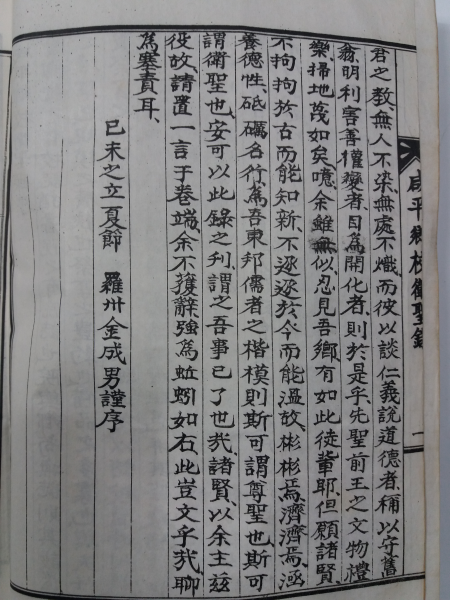 君之敎、無人不染、無處不熾、而彼以談仁義說道德者、稱以守舊
明利害善權變者、目爲開化者、則於是乎、先聖前王之文物禮
樂、掃地蔑如矣、噫、余雖無似、忍見吾鄕有如此徒輩耶、但願諸賢
不拘拘於古而能知新、不逐逐於今而能溫故、彬彬焉、濟濟焉、涵
養德性、砥礪名行、爲吾東邦儒者之楷模、則斯可謂尊聖也、斯可
謂衛聖也、安可以此錄之刊、謂之吾事已了也哉、諸賢以余主玆
役、故請置一言于卷端、余不獲辭、強爲蚯蚓如右、此豈文乎哉、聊
爲塞責耳、
己未之立夏節 羅州金成男謹序
咸平鄕校衛聖錄 一